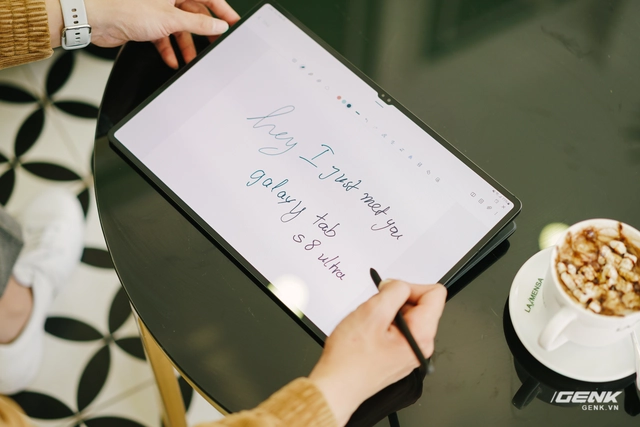 hey I just met you
galaxy tab
s8 ultra
LA/MENSA
GENK
GENK.VN